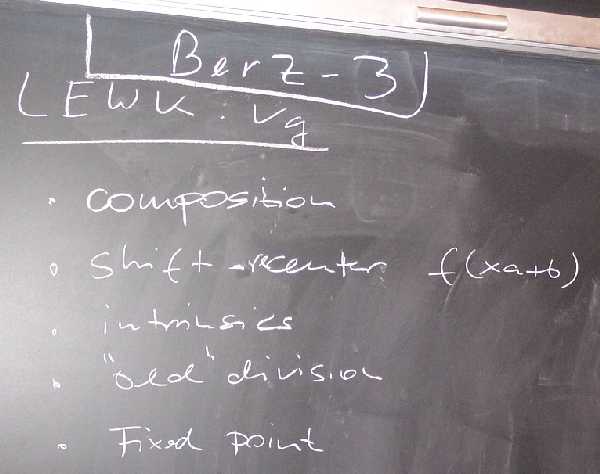 Berz-3
(EWK. Vg
• composition
• shift-recenter f(xa+b)
• intrinsics
• "old" division
• Fixed point